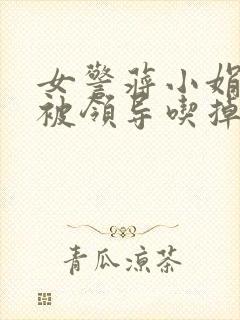 女警蒋小娟
被领导喫掉
青瓜凉茶